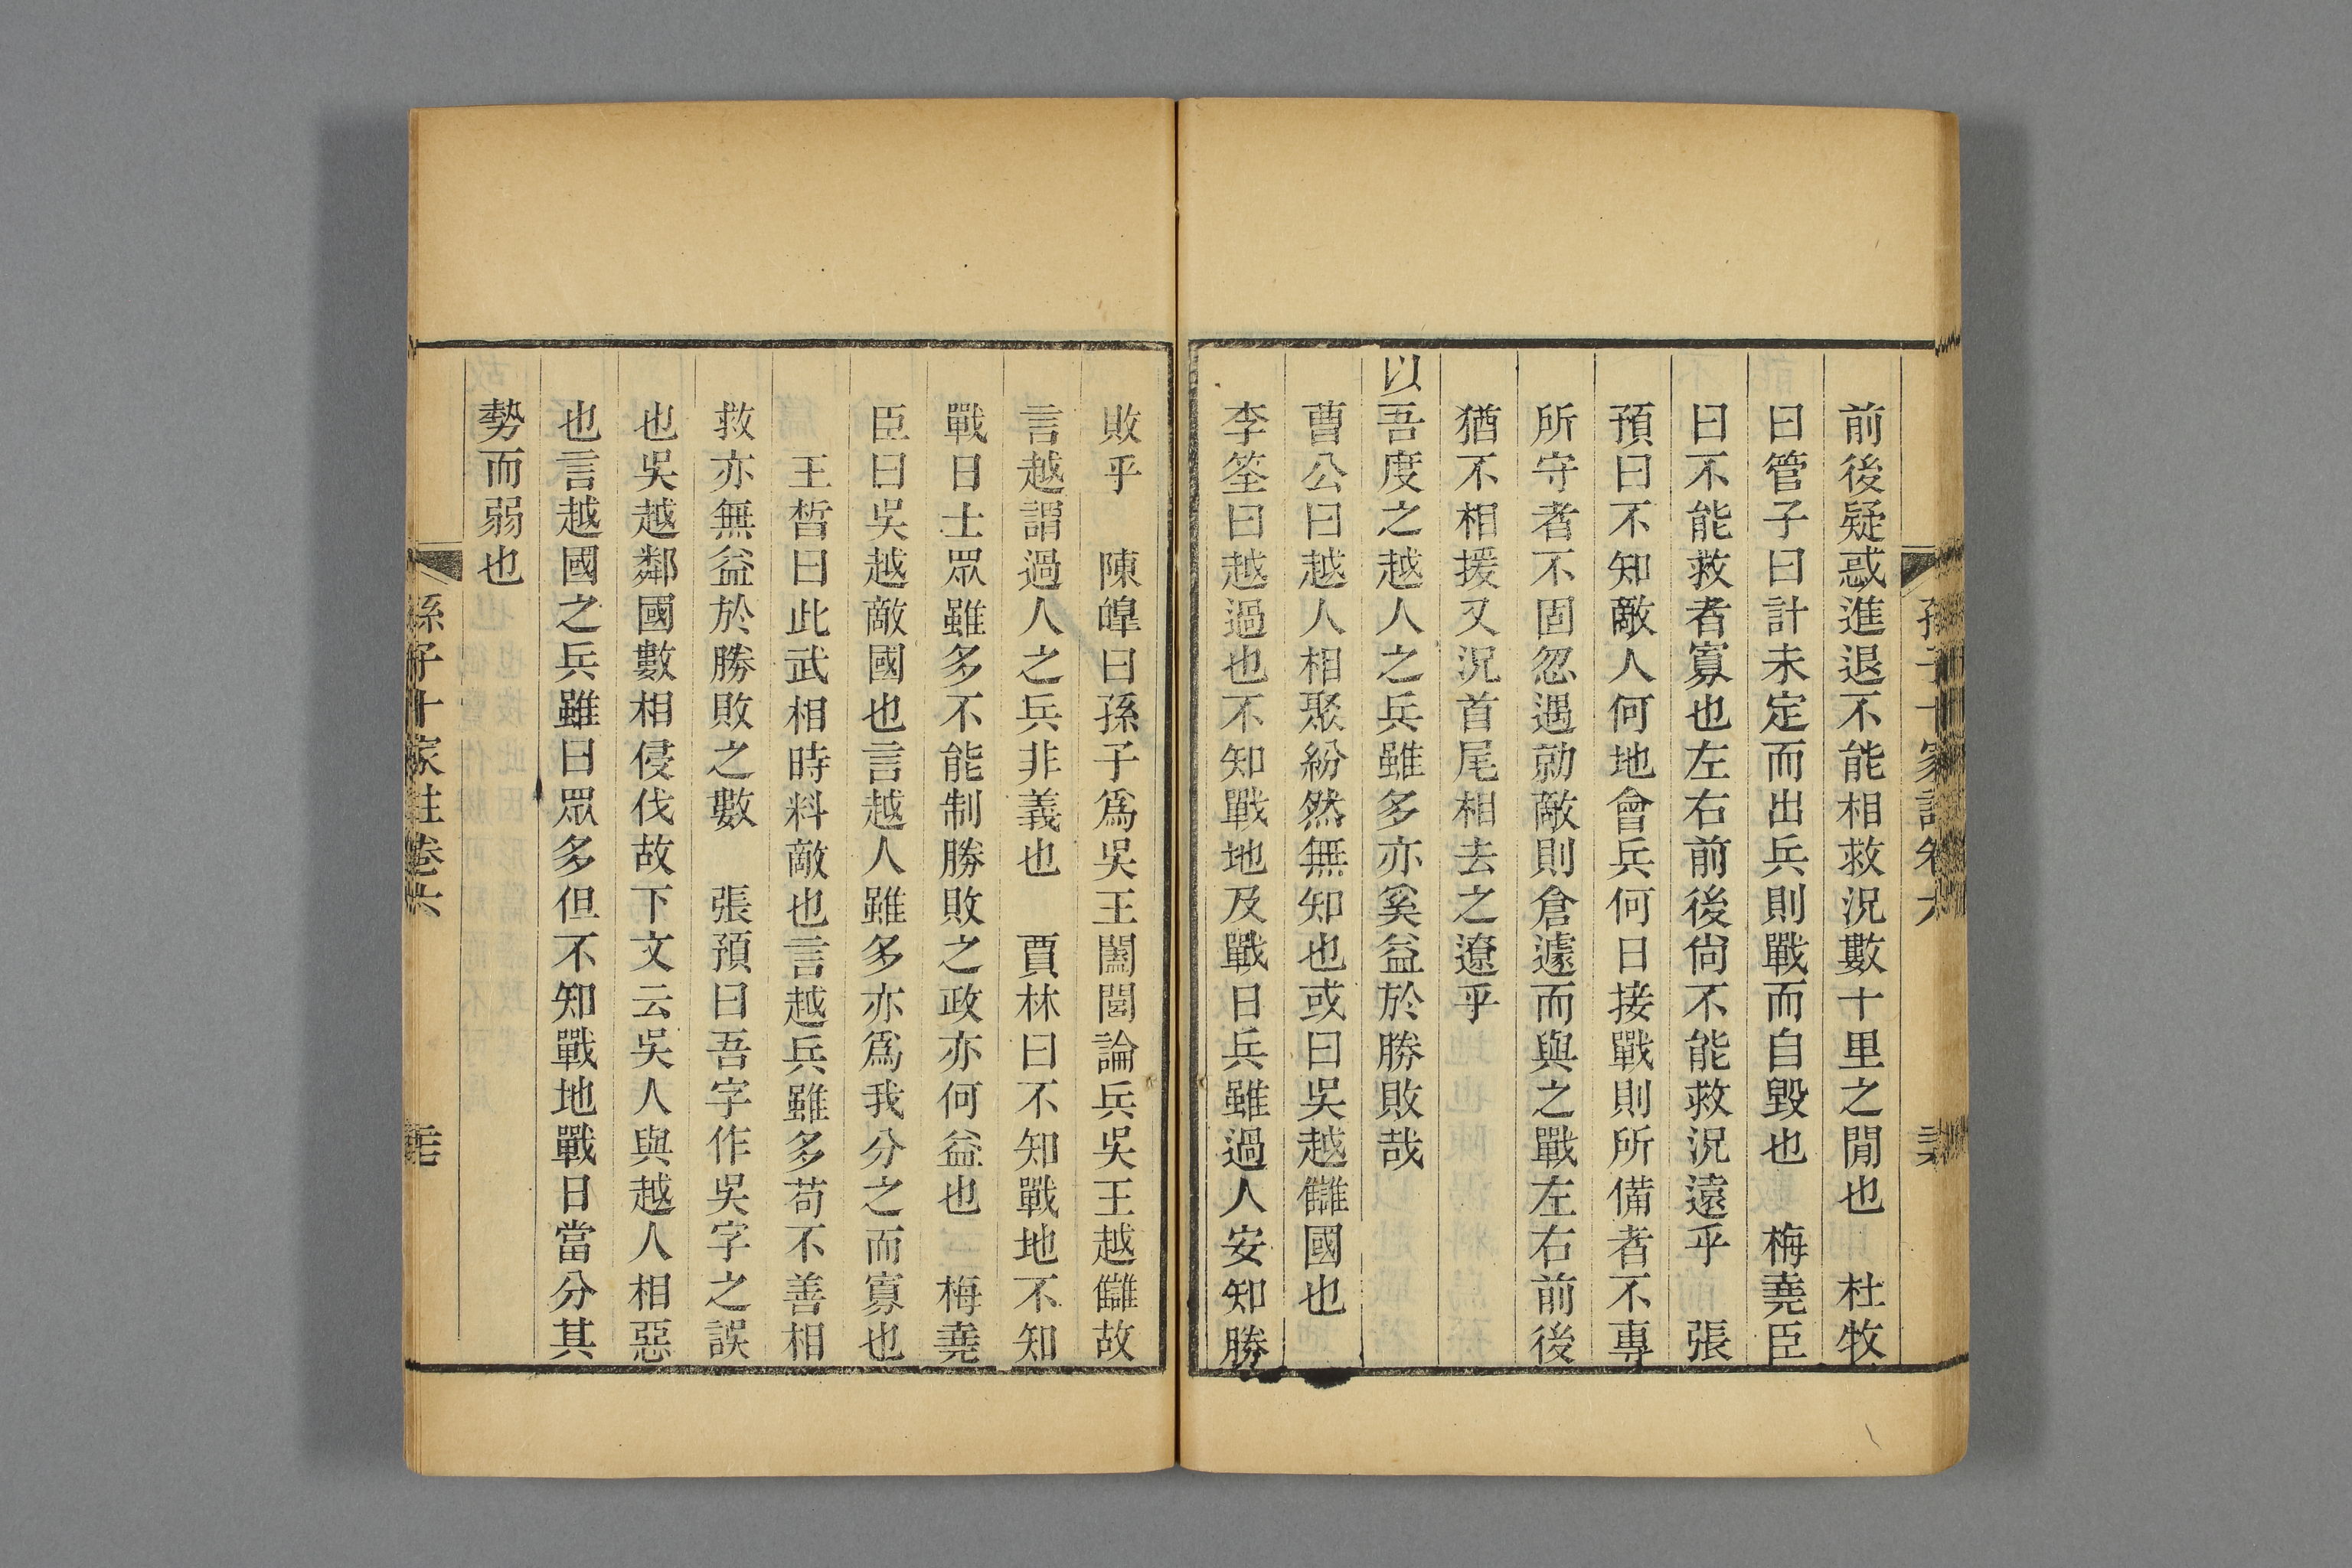 孫子十家註卷六
前後疑惑進退不能相救況數十里之閒也　杜牧
曰管子曰計未定而出兵則戰而自毀也　梅堯臣
曰不能救者寡也左右前後尙不能救況遠乎　張
預曰不知敵人何地會兵何日接戰則所備者不專
所守者不固忽遇勍敵則倉遽而與之戰左右前後
猶不相援又況首尾相去之遼乎
以吾度之越人之兵雖多亦奚益於勝敗哉
曹公曰越人相聚紛然無知也或曰吳越讎國也
李筌曰越過也不知戰地及戰日兵雖過人安知勝
敗乎　陳皥曰孫子爲吳王闔閭論兵吳王越讎故
言越謂過人之兵非義也　賈林曰不知戰地不知
戰日士眾雖多不能制勝敗之政亦何益也　梅堯
臣曰吳越敵國也言越人雖多亦爲我分之而寡也
王晳曰此武相時料敵也言越兵雖多苟不善相
救亦無益於勝敗之數　張預曰吾字作吳字之誤
也吳越鄰國數相侵伐故下文云吳人與越人相惡
也言越國之兵雖曰眾多但不知戰地戰日當分其
勢而弱也
孫子十家註卷六